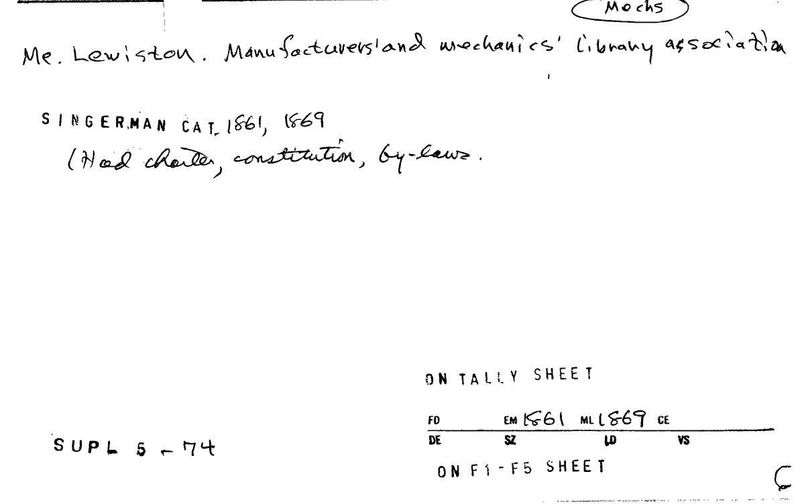 Mechs
Me. Lewiston. Manufacturers' and mechanics' library association
SINGERMAN CAT. 1861, 1869
(Had charter, constitution, by-laws.
ON TALLY SHEET
FD EM 1861 ML 1869 CE
DE SZ LD VS
SUPL 5 - 74
ON F1-F5 SHEET
C